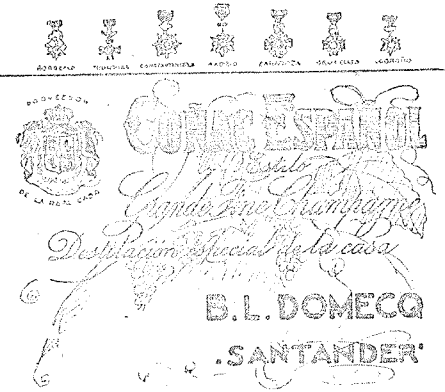 BURDEOS CONSTANTINOPLA MADRID ZARAGOZA GRAN CLASS LOGROÑO
PROVEEDOR
DE LA REAL CASA
COÑAC ESPAÑOL
Estilo
Grande Fine Champagne
Destilación especial de la casa
B.L. DOMECQ
·SANTANDER·